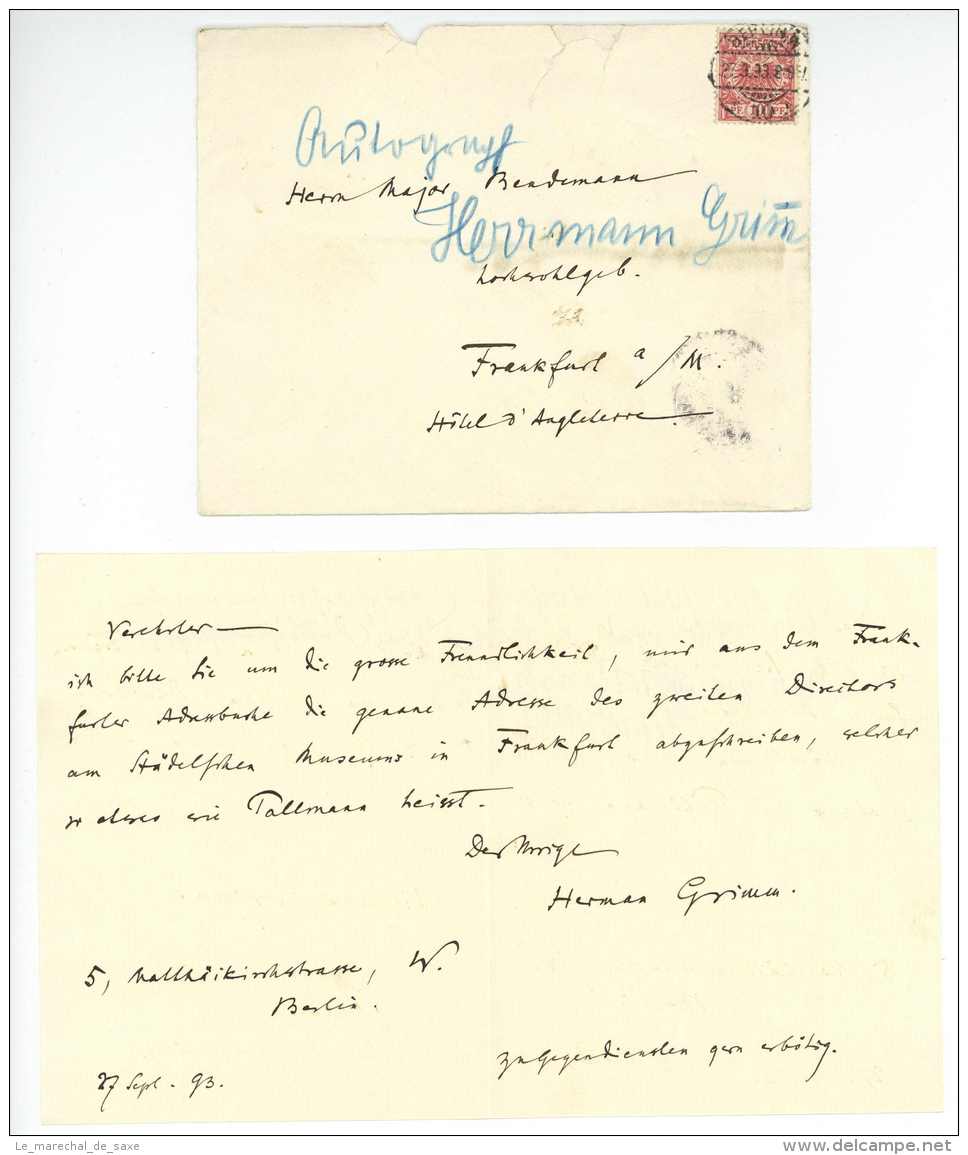 BERLIN
Autograph
Herrn Major Bendemann
Herrmann Grimm
hochwohlgeb.
Frankfurt a/M.
Hôtel d'Angleterre
Verehrter
ich bitte Sie um die grosse Freundlichkeit, mir aus dem Frank-
furter Adressbuche die genaue Adresse des zweiten Directors
am Städelschen Museums in Frankfurt abzuschreiben, welcher
so etwas wie Pallmann heisst.
Der Ihrige
Herman Grimm.
5, Matthäikirchstrasse, W.
Berlin.
zu Gegendiensten gern erbötig.
27 Sept. 93.
Le_marechal_de_saxe
delcampe.net